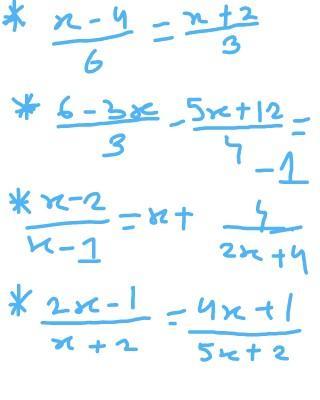 * x - 4 / 6 = x + 2 / 3
* 6 - 3x / 3 - 5x + 12 / 4 = - 1
* x - 2 / x - 1 = x + 4 / 2x + 4
* 2x - 1 / x + 2 = 4x + 1 / 5x + 2